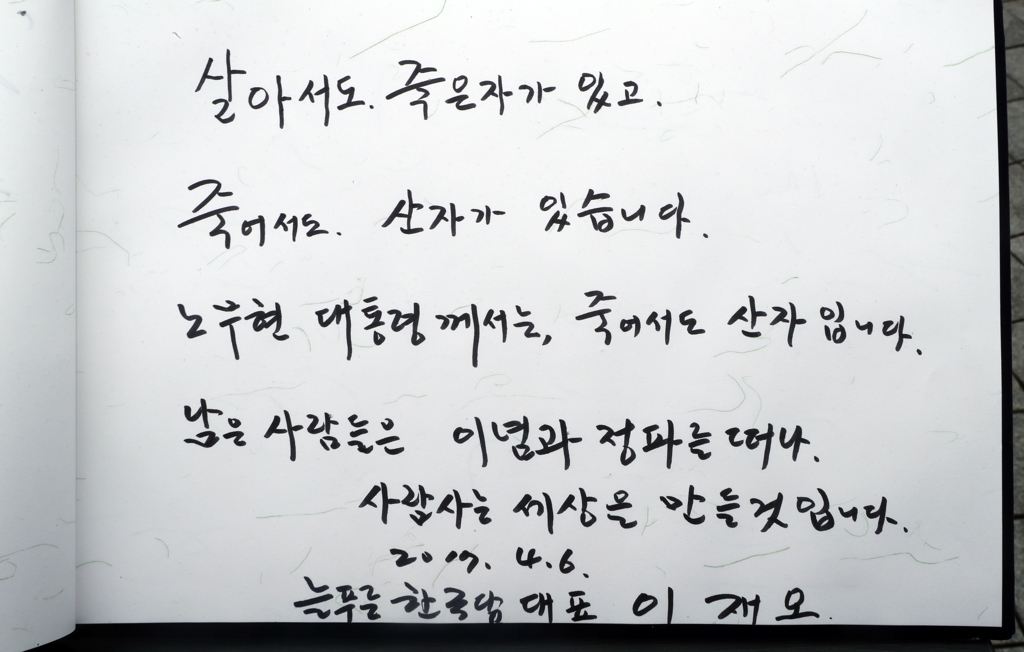 살아서도. 죽은자가 있고.
죽어서도. 산자가 있습니다.
노무현 대통령께서는, 죽어서도 산자입니다.
남은 사람들은 이념과 정파를 떠나.
사람사는 세상을 만들것입니다.
2017. 4.6.
늘푸른한국당 대표 이재오.